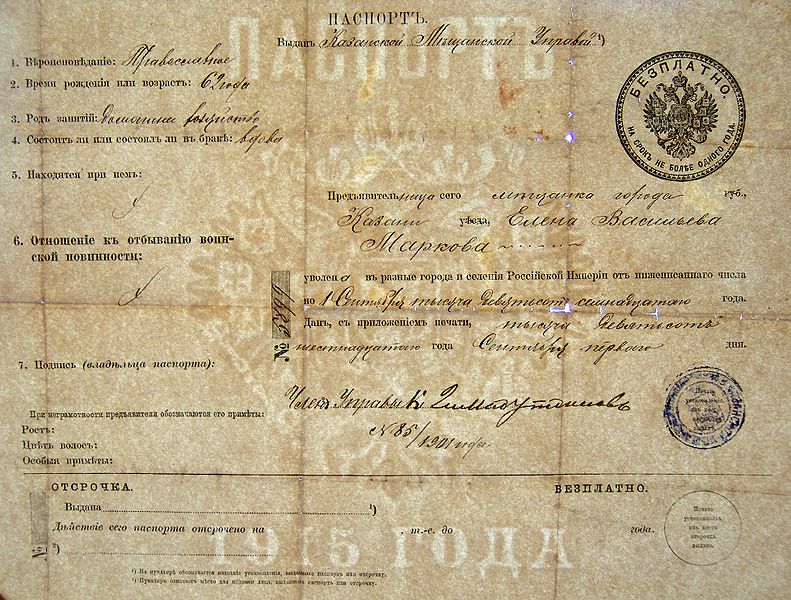 ПАСПОРТЪ.
Выданъ Казанской Мѣщанской Управой ¹)
1. Вѣроисповѣданіе: Православное
2. Время рожденія или возрастъ: 62 года
3. Родъ занятій: домашнее хозяйство
4. Состоитъ ли или состоялъ ли въ бракѣ: вдова
5. Находятся при немъ:
БЕЗПЛАТНО.
НА СРОКЪ НЕ БОЛѢЕ ОДНОГО ГОДА.
Предъявительница сего мѣщанка города губ.,
Казани уѣзда, Елена Васильева
Маркова
6. Отношеніе къ отбыванію воин-
ской повинности:
уволена въ разные города и селенія Россійской Имперіи отъ нижеписаннаго числа
по 1 Сентября тысяча девятисотъ семнадцатаго года.
Данъ, съ приложеніемъ печати, тысяча девятисотъ
шестнадцатаго года Сентября перваго дня.
№
7. Подпись (владѣльца паспорта):
Членъ Управы
№ 85/1901 года
При неграмотности предъявителя обозначаются его примѣты:
Ростъ:
Цвѣтъ волосъ:
Особыя примѣты:
ОТСРОЧКА. БЕЗПЛАТНО.
Выдана ¹)
Дѣйствіе сего паспорта отсрочено на , т.-е. до года.
№ ²)
Печать
установленія,
изъ коего
отсрочка
выдана.
1915 ГОДА
¹) Въ пунктирѣ обозначается названіе установленія, выдавшаго паспортъ или отсрочку.
²) Пунктиръ означаетъ мѣсто для подписи лица, выдавшаго паспортъ или отсрочку.